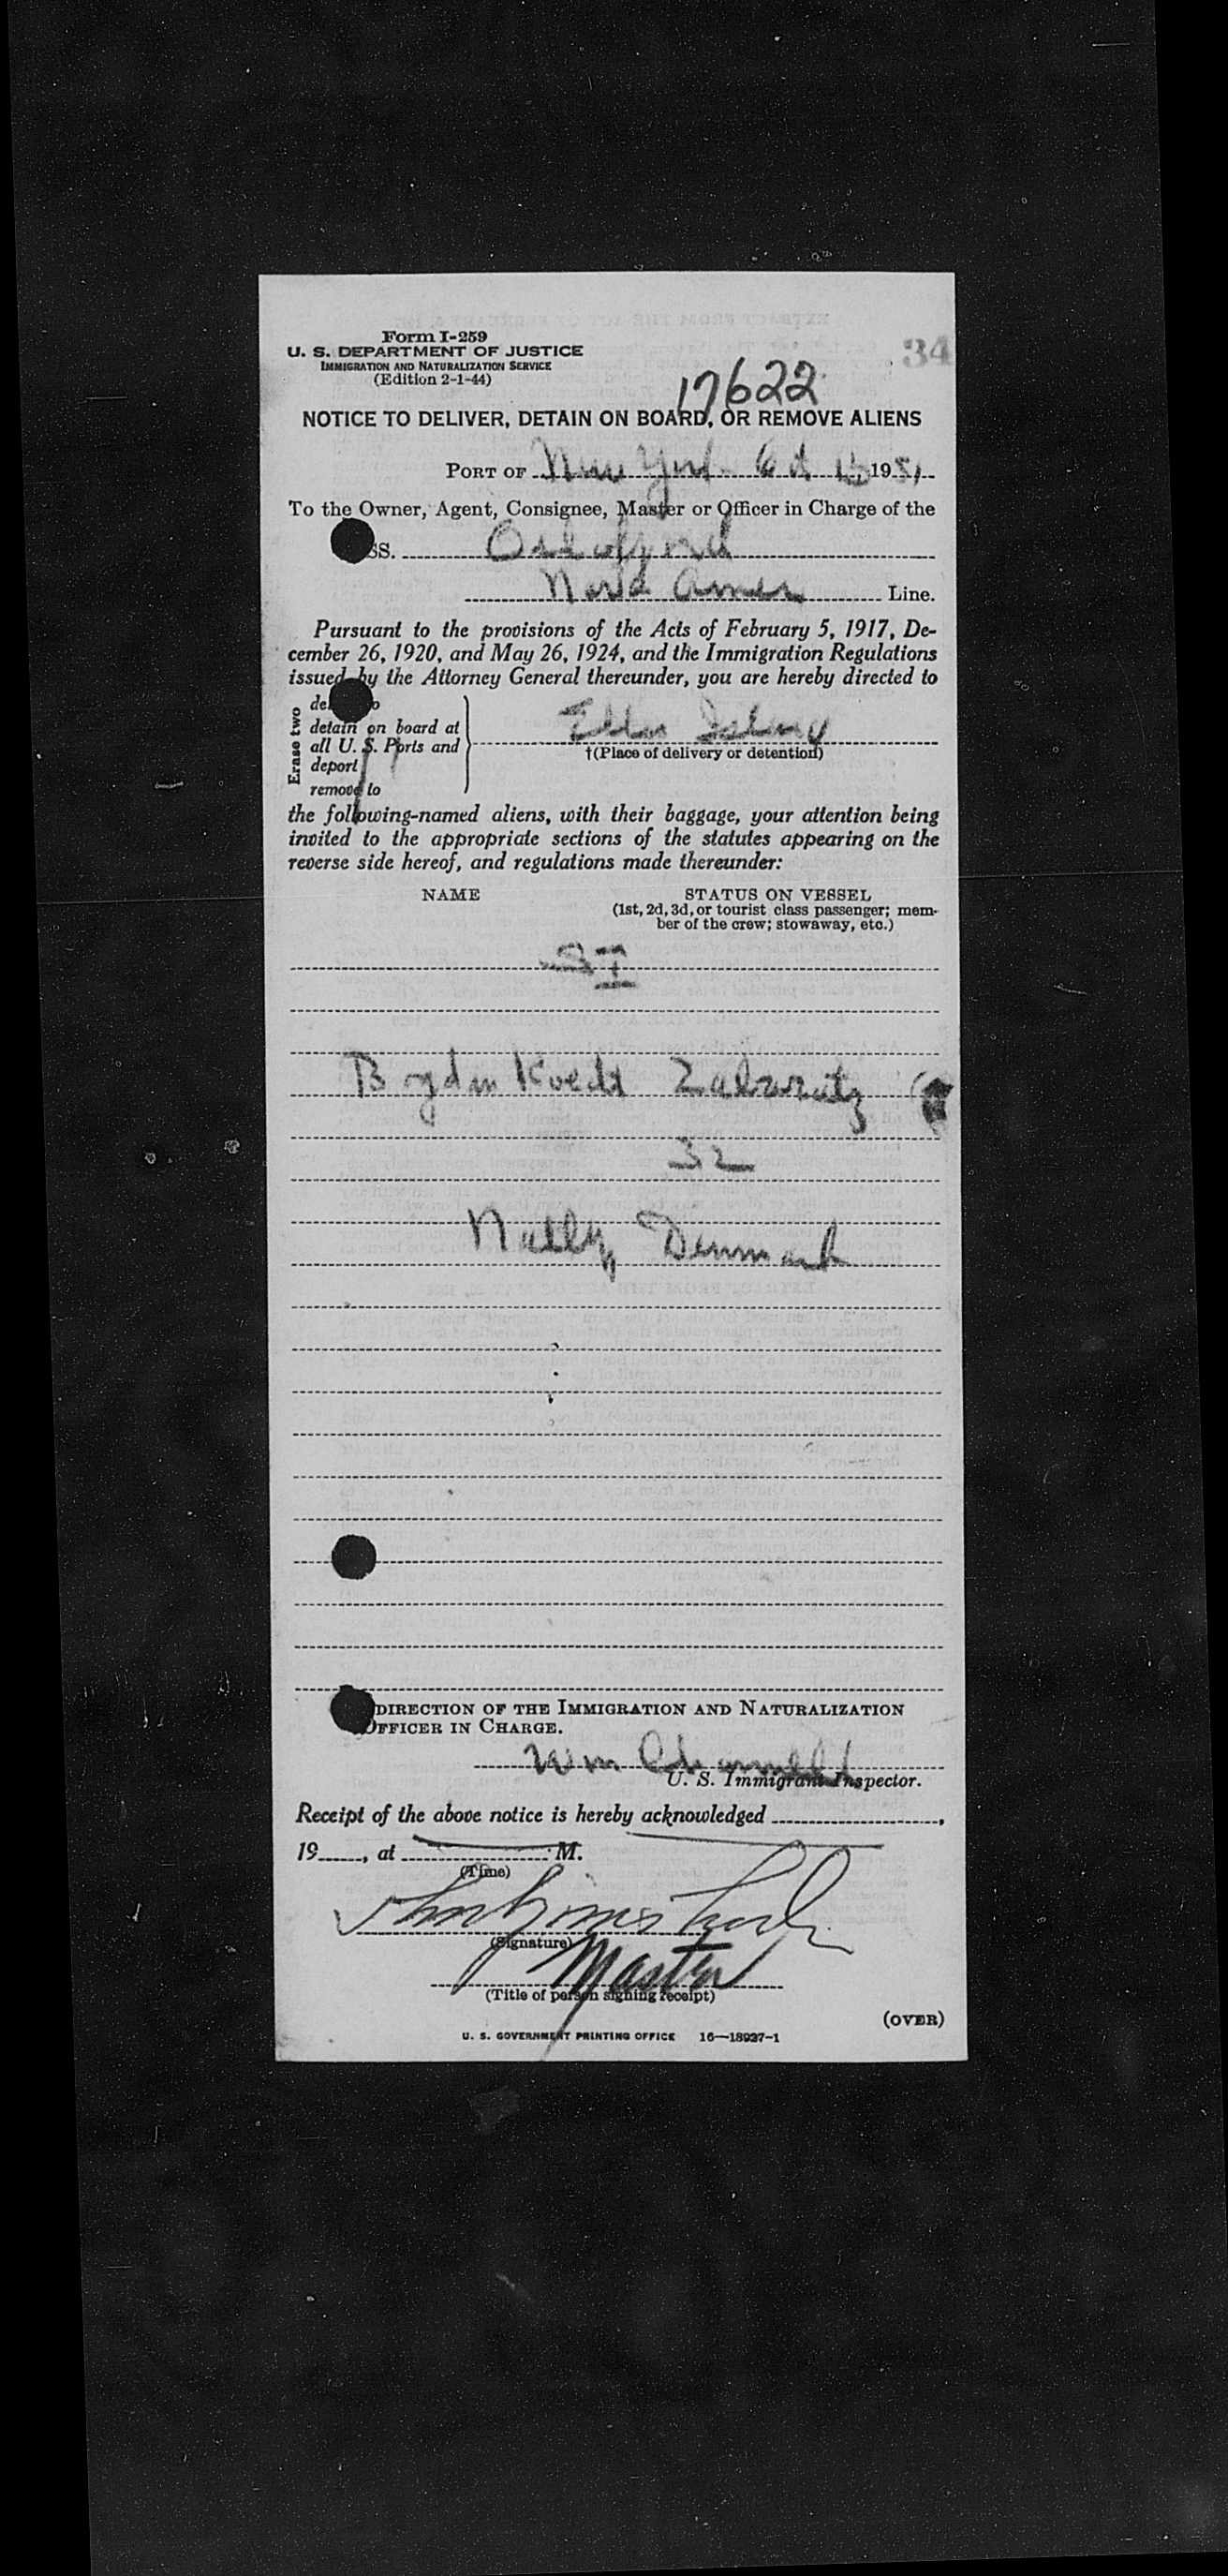 34
Form I-259
U. S. DEPARTMENT OF JUSTICE
IMMIGRATION AND NATURALIZATION SERVICE
(Edition 2-1-44)
17622
NOTICE TO DELIVER, DETAIN ON BOARD, OR REMOVE ALIENS
PORT OF New York Oct 1951
To the Owner, Agent, Consignee, Master or Officer in Charge of the
SS. Oslofjord
Line.
Pursuant to the provisions of the Acts of February 5, 1917, De-
cember 26, 1920, and May 26, 1924, and the Immigration Regulations
issued by the Attorney General thereunder, you are hereby directed to
Erase two
detain on board at
all U. S. Ports and
deport
remove to
Ellis Island
†(Place of delivery or detention)
the following-named aliens, with their baggage, your attention being
invited to the appropriate sections of the statutes appearing on the
reverse side hereof, and regulations made thereunder:
NAME
STATUS ON VESSEL
(1st, 2d, 3d, or tourist class passenger; mem-
ber of the crew; stowaway, etc.)
SI
32
Natly Denmark
DIRECTION OF THE IMMIGRATION AND NATURALIZATION
OFFICER IN CHARGE.
Wm
U. S. Immigrant Inspector.
Receipt of the above notice is hereby acknowledged
19, at M.
(Time)
(Signature)
Master
(Title of person signing receipt)
(OVER)
U. S. GOVERNMENT PRINTING OFFICE 16—18937-1